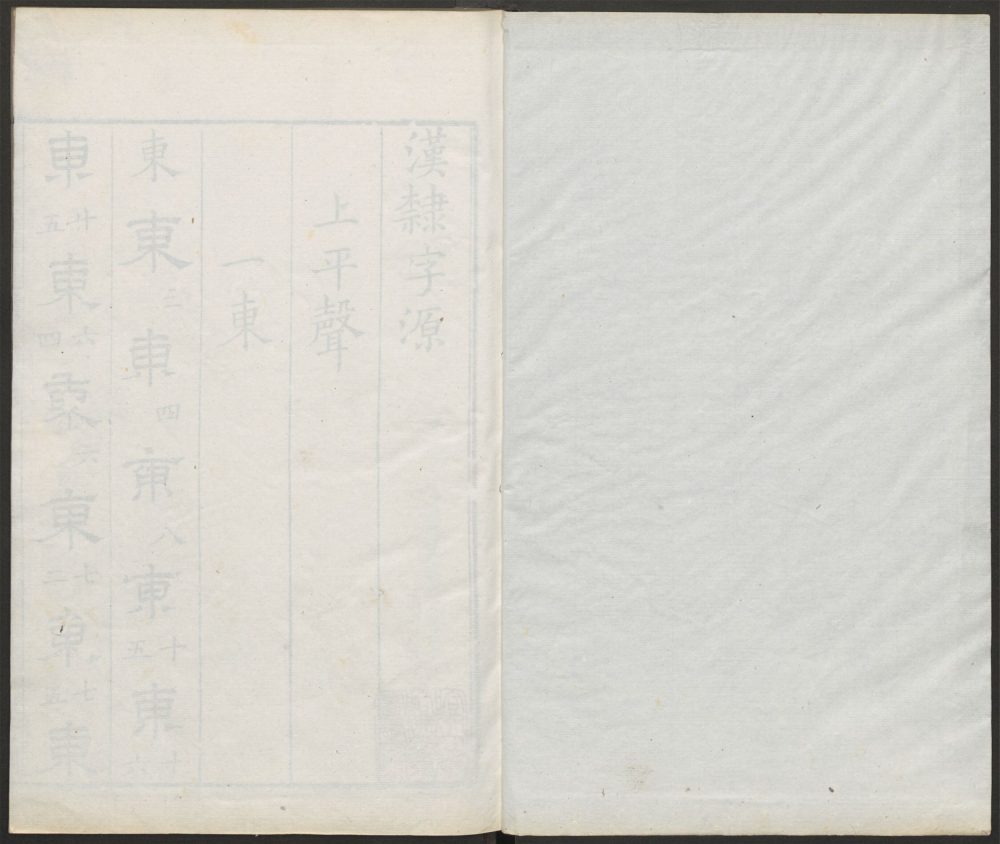 漢隸字源
上平聲
一東
東 東 三 東 四 東 八 東 十五 東 十六
東 廿五 東 六四 東 東 七二 東 七五 東